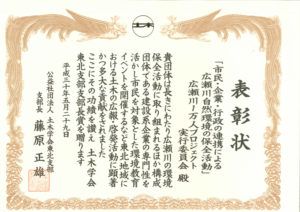 表彰状
「市民・企業・行政の連携による
広瀬川自然環境の保全活動」
広瀬川1万人プロジェクト
実行委員会 殿
貴団体は長きにわたり広瀬川の環境
保全活動に取り組まれるほか構成
団体である建設系企業の専門性を
活かし市民を対象とした環境教育
イベントを開催するなど東北地域に
おける土木の広報・啓発活動に顕著
かつ多大な貢献をされました
ここにその功績を讃え 土木学会
東北支部支部長賞を贈ります
平成三十年五月二十九日
公益社団法人 土木学会東北支部
支部長 藤原 正雄